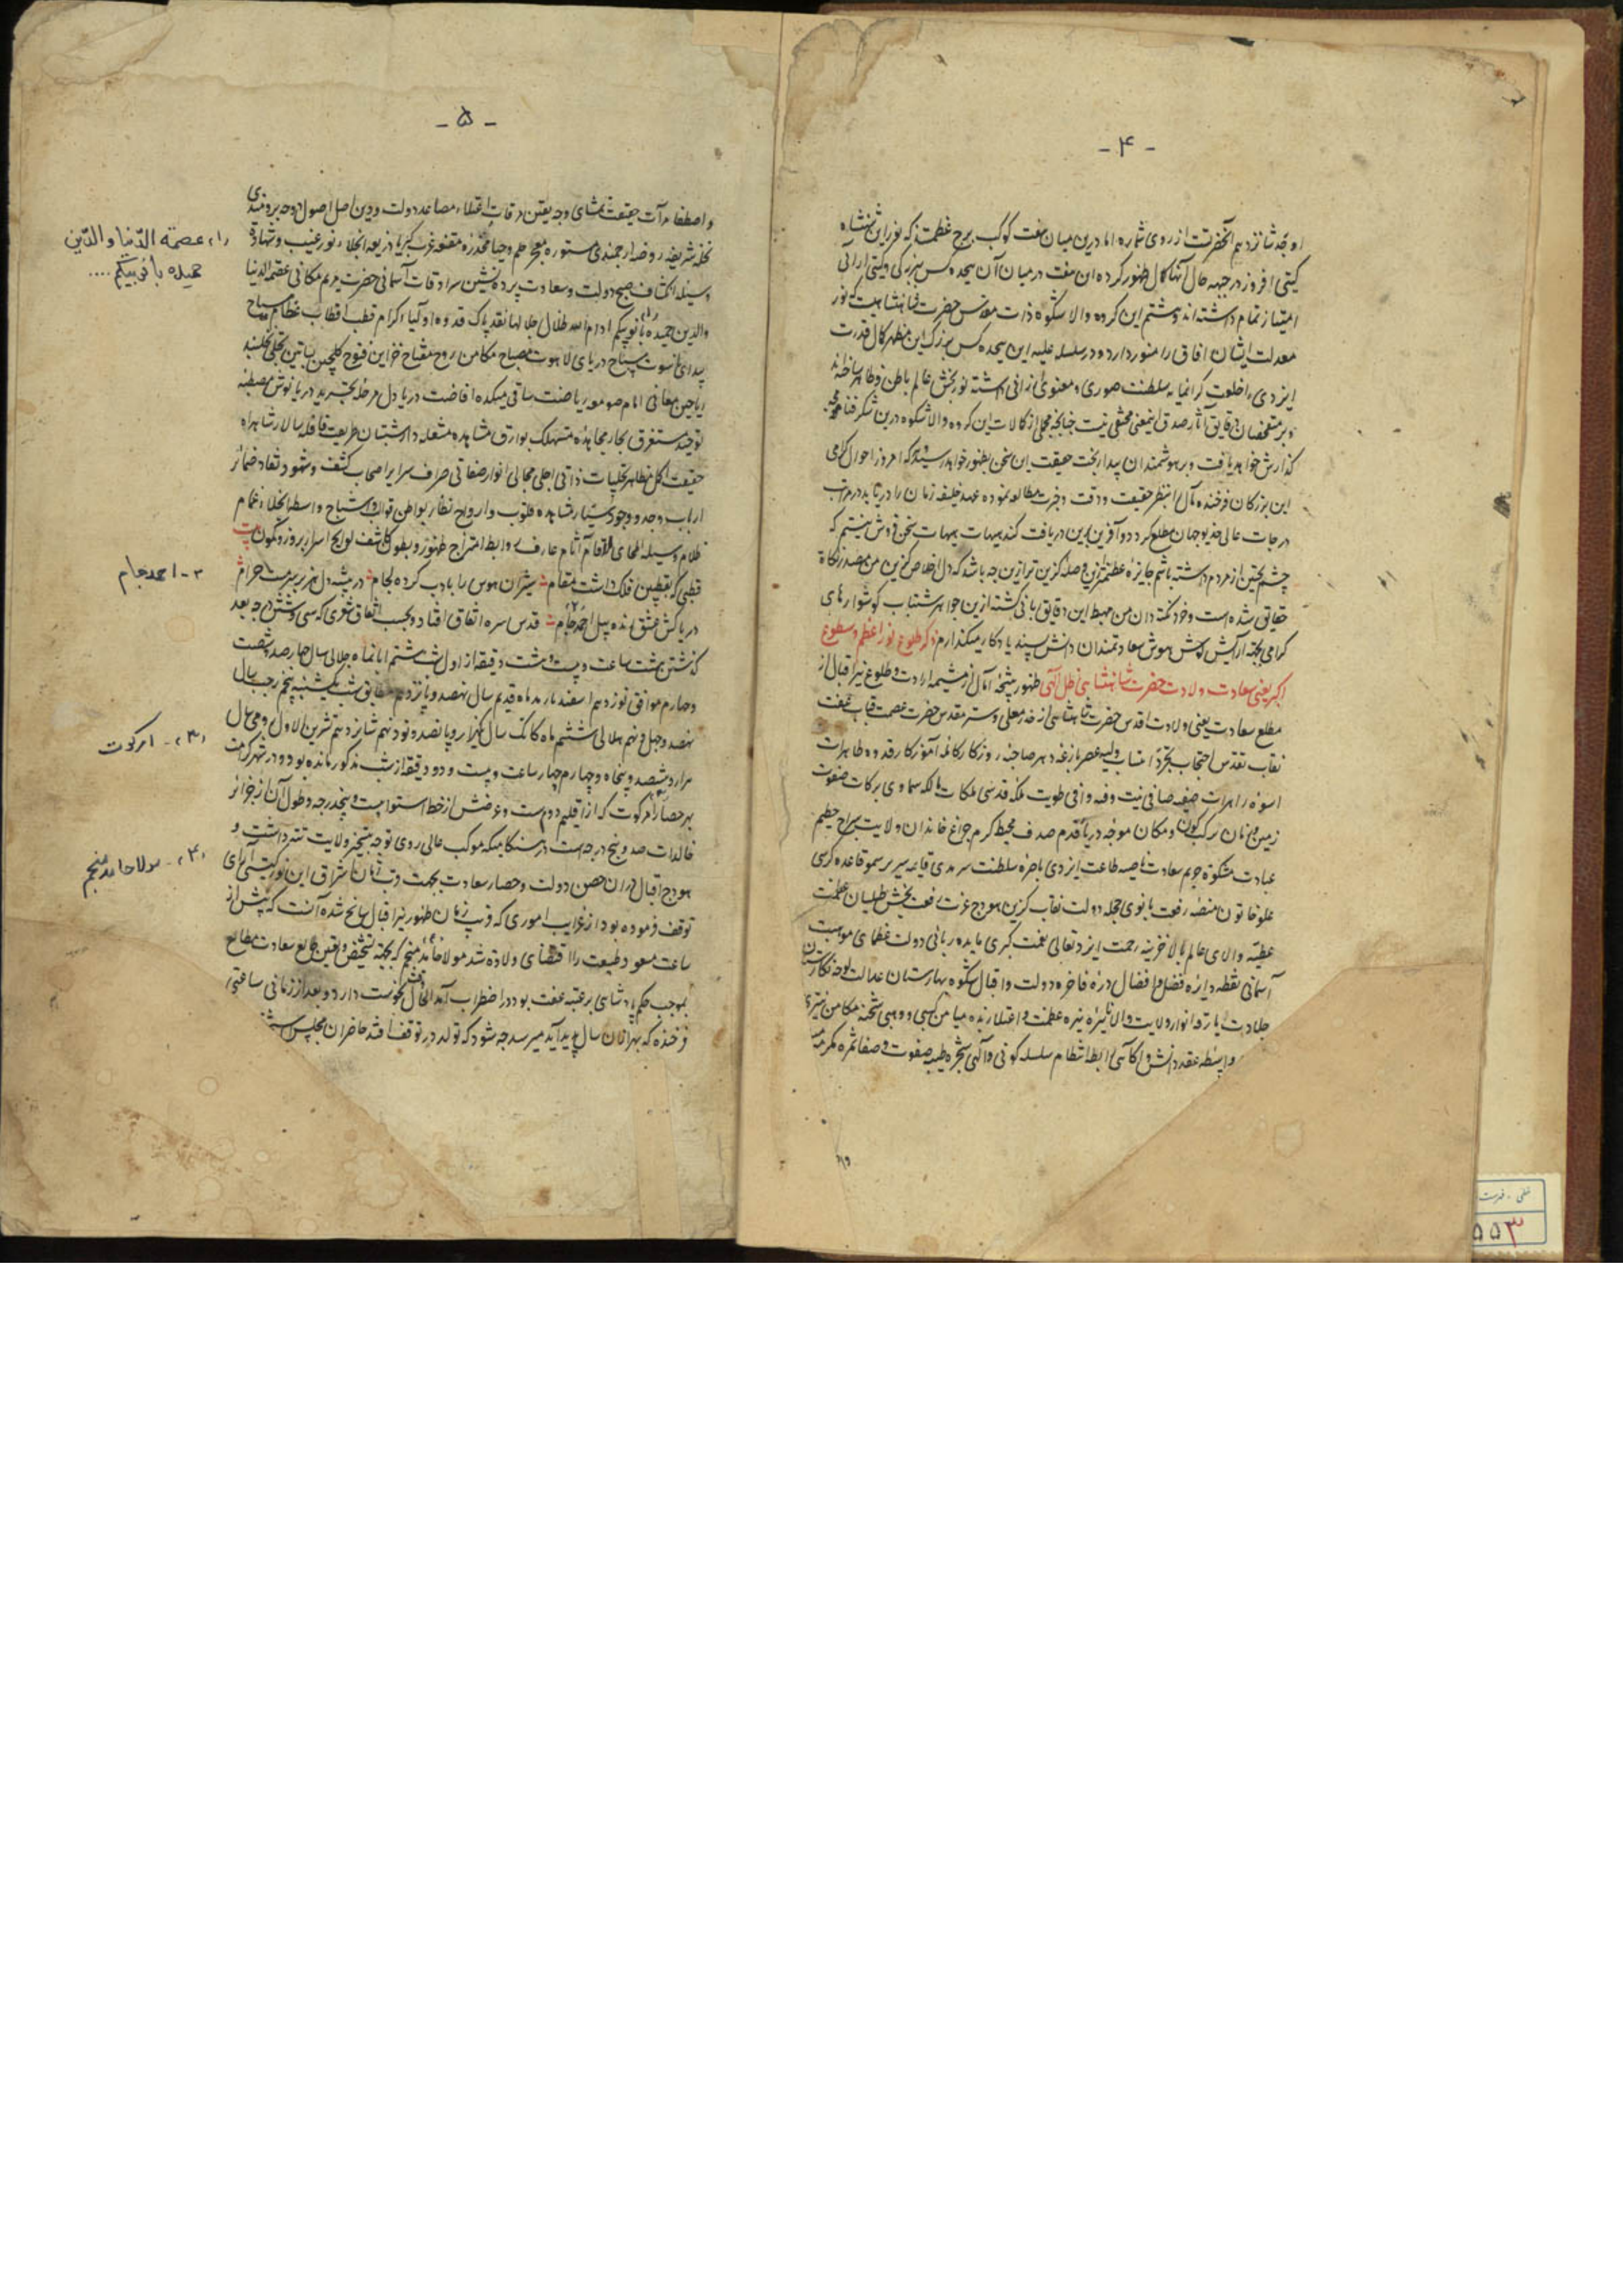 - ۴ -
او جد شانزدهم آنحضرت از روی شماره اما درین میان هفت کوکب برج عظمتند که نور این شاهنشاه
گیتی افروز در جبهه حال آنها کمال ظهور کرده این هفت در میان آن هیجده کس بزرگی و گیتی آرائی
امتیاز تمام داشته اند و هشتم این گروه والا شکوه ذات مقدس حضرت شاهنشاهیست که نور
معدلت ایشان آفاق را منور دارد و در سلسله علیه این هیجده کس بزرگ این مظهر کمال قدرت
ایزدی را خلعت گرانمایه سلطنت صوری و معنوی ارزانی داشته نور بخش عالم باطن و ظاهر ساخته اند
و بر متفحصان دقایق آثار صدق این معنی مخفی نیست چنانچه مجملی از کمالات این گروه والا شکوه درین شگرفنامه
گذارش خواهد یافت و بر هوشمندان بیدار بخت حقیقت این سخن بظهور خواهد رسید که امروز احوال گرامی
این بزرگان فرخنده مآل را بنظر حقیقت و دقت و خبرت مطالعه نموده عهد خلیفه زمان را دریابد و در مراتب
درجات عالی خدیو جهان مطلع گردد و آفرین برین دریافت کند هیهات هیهات سخن فروش نیستم که
چشم تحسین از مردم داشته باشم جایزه عظیمتر ازین و صله گزین تر ازین چه باشد که دل اخلاص گزین من مصدر نکات
حقایق شده است و خرد نکته دان من مهبط این دقایق بانی گشته ازین جواهر شبتاب گوشوارهای
گرامی بجهة آرایش گوش هوش سعادتمندان دانش پسند یادگار میگذارم ذکر طلوع نور اعظم و سطوع
اکبر یعنی سعادت ولادت حضرت شاهنشاهی ظل الهی ظهور نتیجه آمال از مشیمه ارادت و طلوع نیر اقبال از
مطلع سعادت یعنی ولادت اقدس حضرت شاهنشاهی از خدر معلی و ستر مقدس حضرت عصمت قباب عفت
نقاب تقدس احتجاب تجرد انتساب ولیه عصر بازغه دهر صاحبه روزگار کامله آموزگار قدوه طاهرات
اسوه زاهرات صفیه صافی نیت وفیه وافی طویت ملکه قدسی ملکات مالکه سماوی برکات صفوت
زمین و زمان برکت کون و مکان موجه دریای قدم صدف محیط کرم چراغ خاندان ولایت سراج حطیم
عبادت مشکوة حریم سعادت ناصیه طاعت ایزدی باصره سلطنت سرمدی قایمه سریر سمو قاعده کرسی
علو خاتون منصه رفعت بانوی حجله دولت نقاب گزین هودج عزت رفعت بخش طیلسان عظمت
عطیه والای عالم بالا خزینه رحمت ایزد تعالی نعمت کبری مایده ربانی دولت عظمای موهبت
آسمانی نقطه دایره فضل و افضال دره فاخره دولت و اقبال شکوفه بهارستان عدالت لوحه نگارستان
جلادت بارقه انوار ولایت والا نایره نیره عظمت و اعتلا زبده میامن کسبی و وهبی شحنه مکامن سری
واسطه عقد دانش و آگاهی رابطه انتظام سلسله کونی و آلهی شجره طیبه صفوت و صفا ثمره مکرمه
۵۵۳
- ۵ -
و اصطفا مرآت حقیقت نمای وجه یقین مرقات اعتلاء مصاعد دولت و دین اصل اصول دوحه برومندی
نخله شریفه روضه ارجمندی مستوره معجر حلم و حیا مخدره مقنعه عز و کبریا ذریعه انجلاء نور غیب و شهادت
وسیله انکشاف صبح دولت و سعادت پرده نشین سرادقات آسمانی حضرت مریم مکانی عصمة الدنیا
والدین حمیده بانو بیگم ادام الله ظلال جلالها نقد پاک قدوه اولیاء کرام قطب اقطاب عظام سیاح
بیدای ناسوت سباح دریای لاهوت مصباح مکامن روح مفتاح خزاین فتوح گلچین بساتین تجلی نخلبند
ریاحین معانی امام صومعه ریاضت ساقی میکده افاضت دریا دل مرحله تجرید دریا نوش مصطبه
توحید مستغرق بحار مجاهده مستهلک بوارق مشاهده مشعله دار شبستان طریعت قافله سالار شاهراه
حقیقت اکمل مظاهر تجلیات ذاتی اجلی مجالی انوار صفاتی صراف سرایر اصحاب کشف و شهود نقاد ضمایر
ارباب وجد و وجود بسیار مشاهده قلوب و ارواح نظار بواطن قوالب و اشباح واسطه انجلاء غمام
ظلام وسیله انمحای ارقام آثام عارف روابط امتزاج ظهور و بطون کاشف لوایح اسرار بروز و کمون بیت
قطبی که بقطبین فلک داشت مقام شیران هوس را بادب کرده لجام در بیشه دل هژبر سرمست خرام
دریاکش عشق زنده پیل احمد جام قدس سره اتفاق افتاد و بحسب اتفاق شعری که سی و شش درجه بعد
گذشتن هشت ساعت و بیست و هشت دقیقه از اول شب هشتم ابانماه جلالی سال چهارصد و شصت
و چهارم موافق نوزدهم اسفندارمذ ماه قدیم سال نهصد و یازدهم مطابق شب یکشنبه پنجم رجب سال
نهصد و چهل و نهم هلالی ششم ماه کاتک سال یکهزار و پانصد و نود و نهم شانزدهم تشرین الاول رومی سال
هزار و هشتصد و پنجاه و چهارم چهار ساعت و بیست و دو دقیقه از شب مذکور مانده بود و در شهر کرامت
بهر حصار امرکوت که از اقلیم دوم است و عرضش از خط استوا بیست و پنجدرجه و طول آن از جزایر
خالدات صد و پنج درجه است در هنگامیکه موکب عالی روی توجه بتسخیر ولایت تته داشت و
هودج اقبال را دران حصن دولت و حصار سعادت بجهت قرب زمان اشراق این نور گیتی آرای
توقف فرموده بود از غرایب اموری که قرب زمان ظهور نیر اقبال سانح شده آنست که پیش از
ساعت مسعود طبیعت را اقتضای ولادت شد مولانا چاند منجم که بجهة تشخیص و تعین طالع سعادت مطالع
بموجب حکم پادشاهی بر عتبه عفت بود در اضطراب آمد که الحال وقت نحوست دارد و بعد از زمانی ساعتی
فرخنده که بهزاران سال پدید آید میرسد چه شود که تولد در توقف افتد حاضران مجلس
(۱) عصمة الدّنیا والدّین
حمیده بانو بیگم ....
۲- احمد جام
(۳) - امرکوت
(۴) - مولا حامد منجم